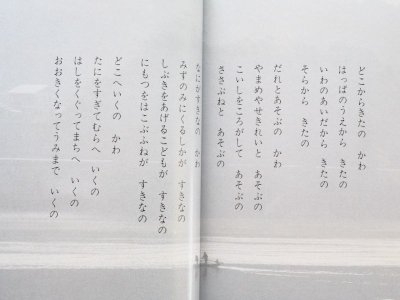 どこからきたの　かわ
はっぱのうえから　きたの
いわのあいだから　きたの
そらから　きたの
だれとあそぶの　かわ
やまめやせきれいと　あそぶの
こいしをころがして　あそぶの
ささぶねと　あそぶの
なにがすきなの　かわ
みずのみにくるしかが　すきなの
しぶきをあげるこどもが　すきなの
にもつをはこぶふねが　すきなの
どこへいくの　かわ
たにをすぎてむらへ　いくの
はしをくぐってまちへ　いくの
おおきくなってうみまで　いくの